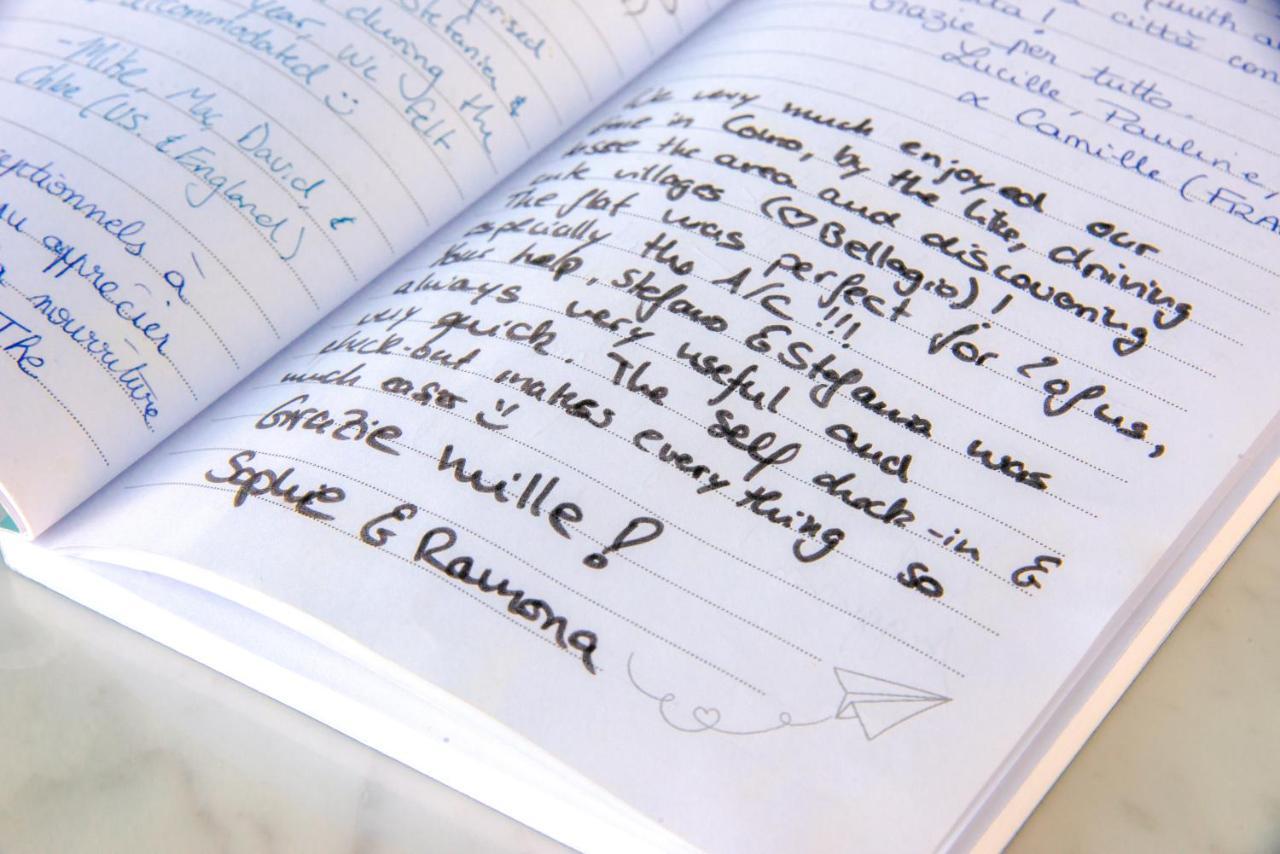 prised
Stefania &
during the
year, we felt
accommodated :)
-Mike, Mac, David, &
Chloe (US. & England)
à
apprécier
nourriture
The
città con
Grazie per tutto.
Lucille, Pauline,
& Camille (FRA
We very much enjoyed our
time in Como, by the like, driving
the area and discovering
cute villages (♡Bellagio)!
The flat was perfect for 2 of us,
especially the A/C !!!
Your help, Stefano & Stefania was
always very useful and
very quick. The self check-in &
check-out makes everything so
much easier :)
Grazie mille!
Sophie & Ramona